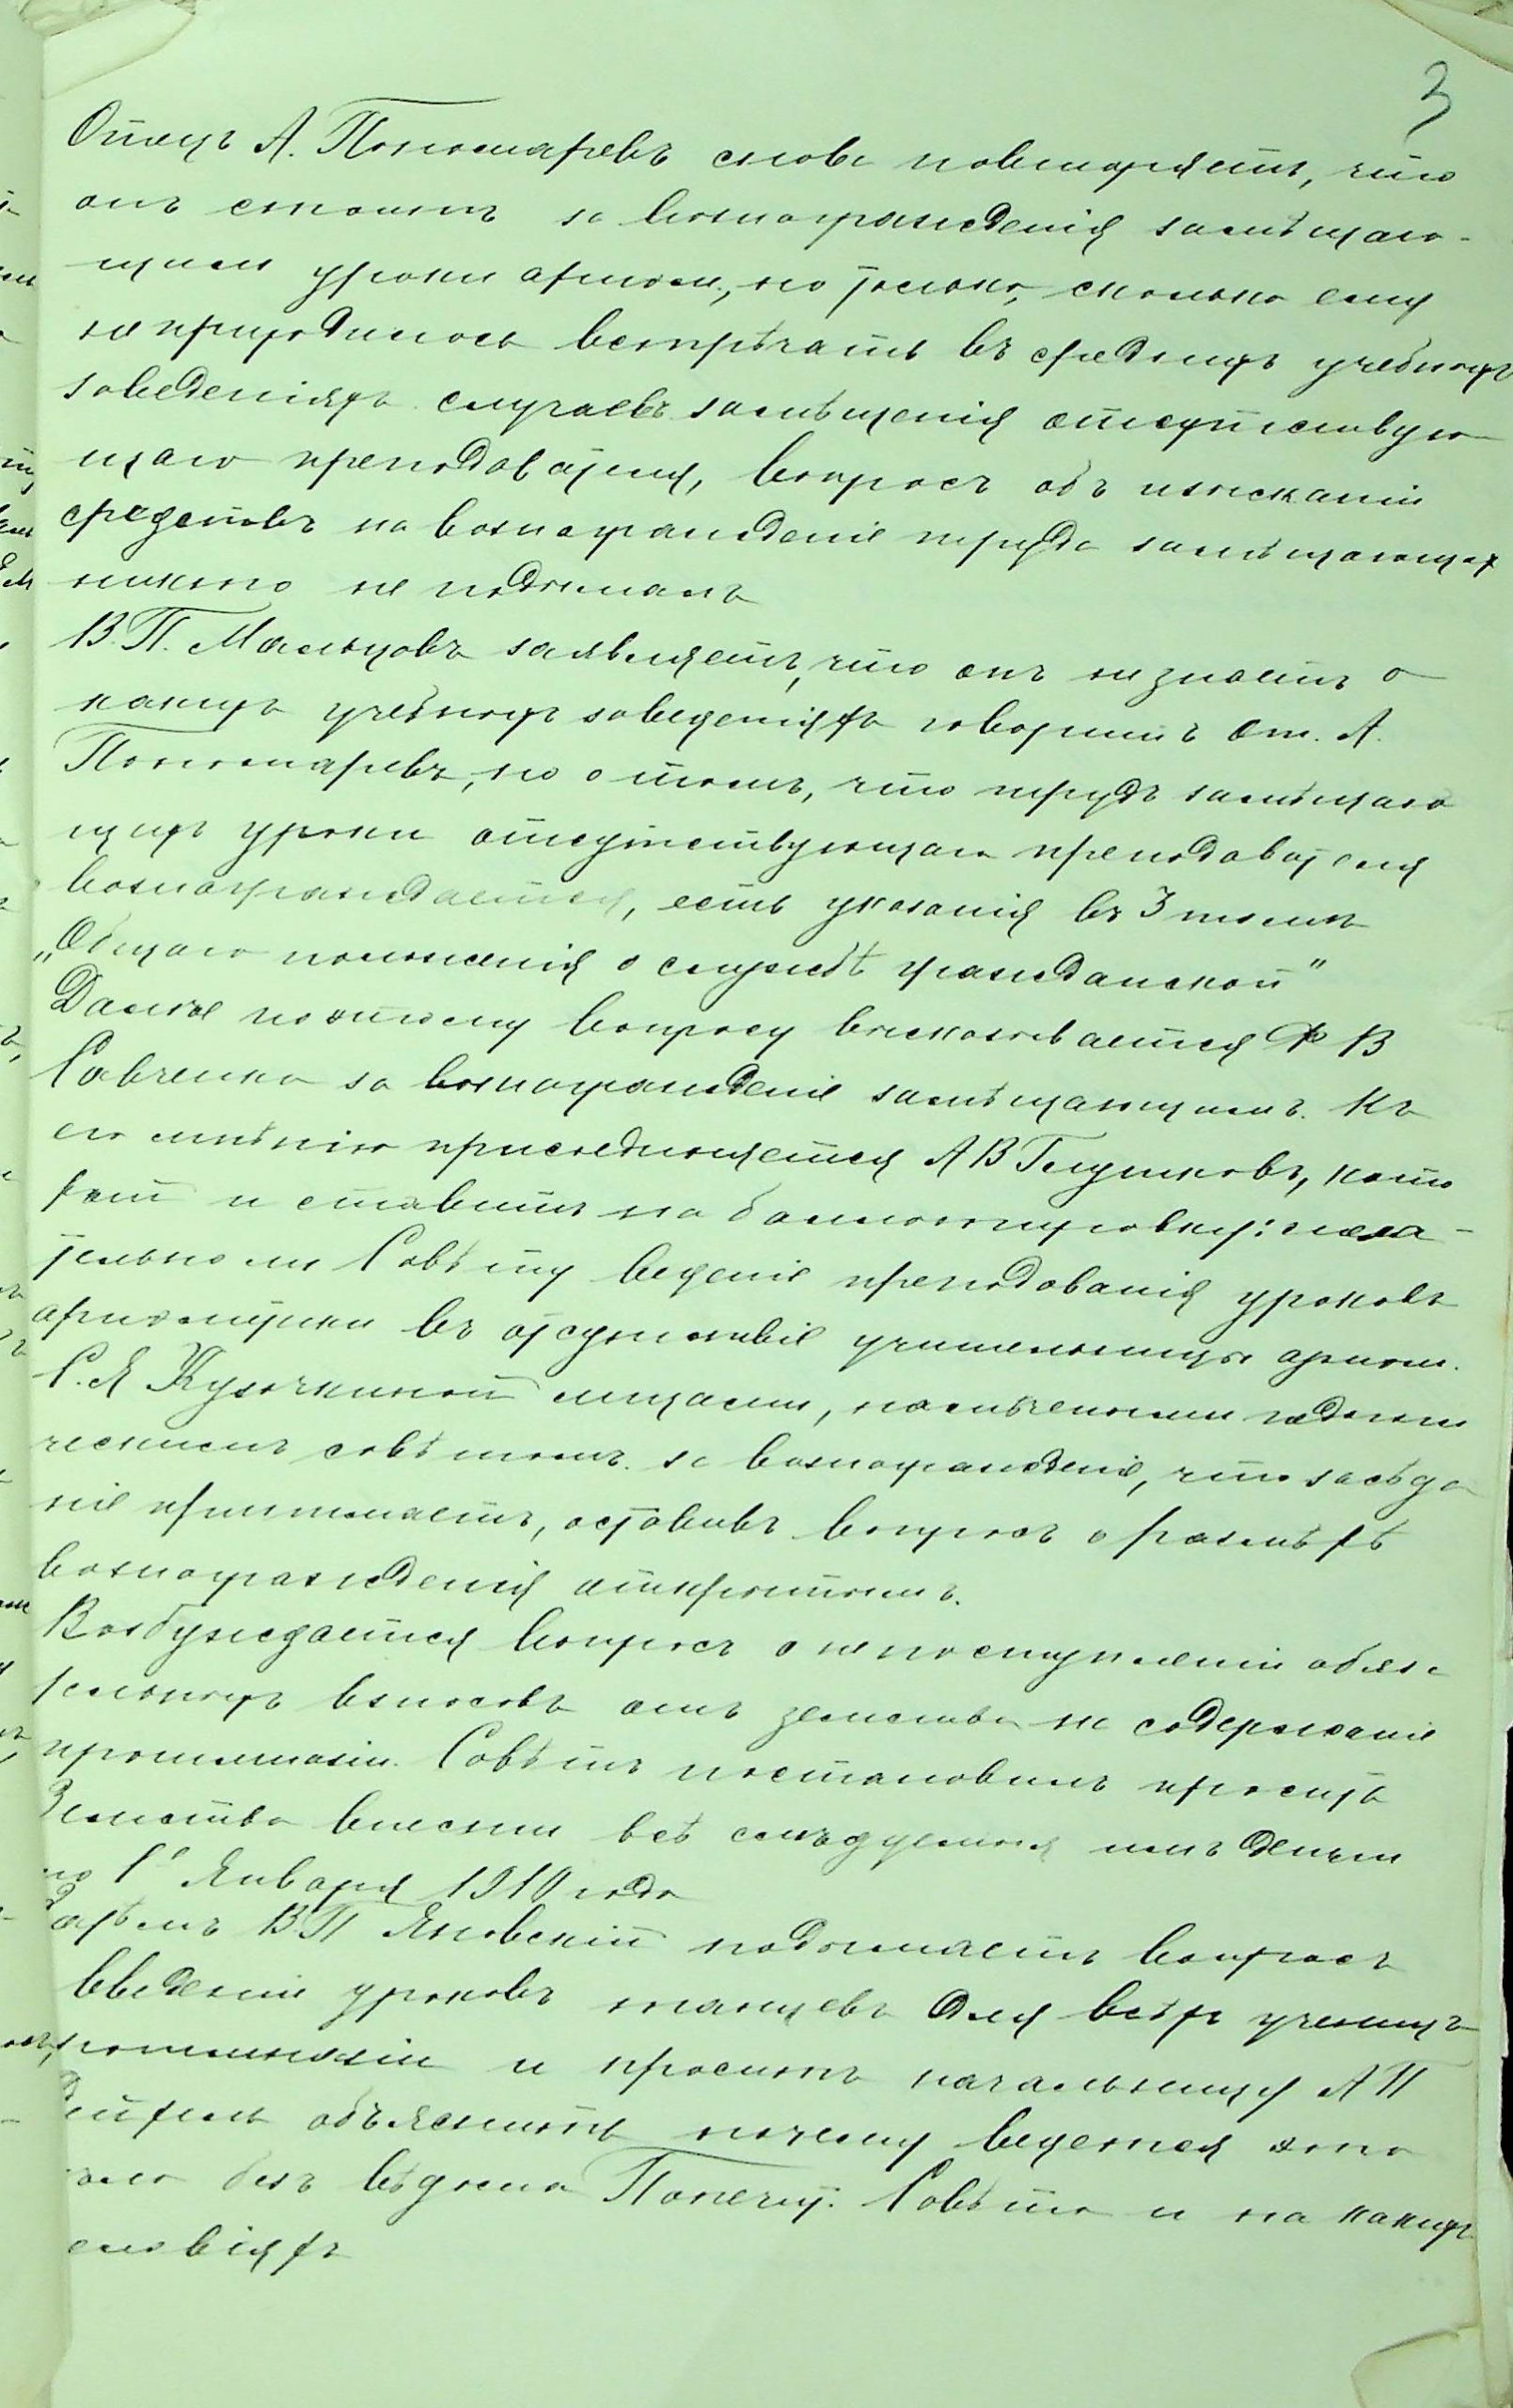 3
Отецъ А. Пономаревъ снова повторяетъ, что
онъ стоитъ за вознагражденія замѣщаю-
щимъ уроки ариѳм., но только, сколько ему
не приходилось встрѣчать въ среднихъ учебныхъ
заведеніяхъ случаевъ замѣщенія отсутствую
щаго преподавателя, вопросъ объ изысканіи
средствъ на вознагражденіе труда замѣщающихъ
никто не поднималъ
В. П. Мальцовъ заявляетъ, что онъ не знаетъ о
какихъ учебныхъ заведеніяхъ говоритъ От. А.
Пономаревъ, но о томъ, что трудъ замѣщаю
щихъ уроки отсутствующаго преподавателя
вознаграждается, есть указанія въ 3 томѣ
„Общаго положенія о службѣ гражданской"
Далѣе по этому вопросу высказывается Ф В
Савченко за вознагражденіе замѣщающимъ. Къ
его мнѣнію присоединяется А В Глушковъ, кото
рый и ставитъ на баллотировку: жела-
тельно ли Совѣту веденіе преподаванія уроковъ
ариѳметики въ отсутствіе учительницы ариѳм.
С. Я Кулочкиной лицами, намѣченными педагоги
ческимъ совѣтомъ за вознагражденіе, что засѣда
ніе принимаетъ, оставивъ вопросъ о размѣрѣ
вознагражденія открытымъ.
Возбуждается вопросъ о непоступленіи обяза
тельныхъ взносовъ отъ земства на содержаніе
прогимназіи. Совѣтъ постановилъ просить
Земство внести всѣ слѣдуемыя имъ деньги
по 1е Января 1910 года
Затѣмъ В. П Яновскій поднимаетъ вопросъ
введеніи уроковъ танцевъ для всѣхъ ученицъ
прогимназіи и проситъ начальницу А П
объяснить почему ведется это
дѣло безъ вѣдома Попечит. Совѣта и на какихъ
условіяхъ